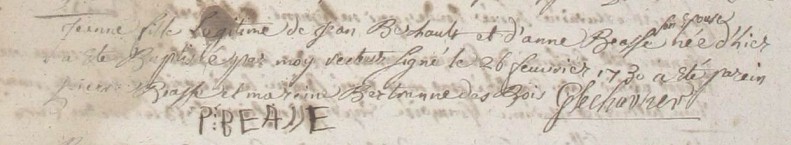 Jeanne fille legitime de Jean Berhault et d'anne Beasse son Epouse née d'hier
a ete Baptisée par moy recteur signé le 26 feuvrier 1730 a eté parein
pierre Beasse et maraine Bertranne des Bois
P: BEASSE